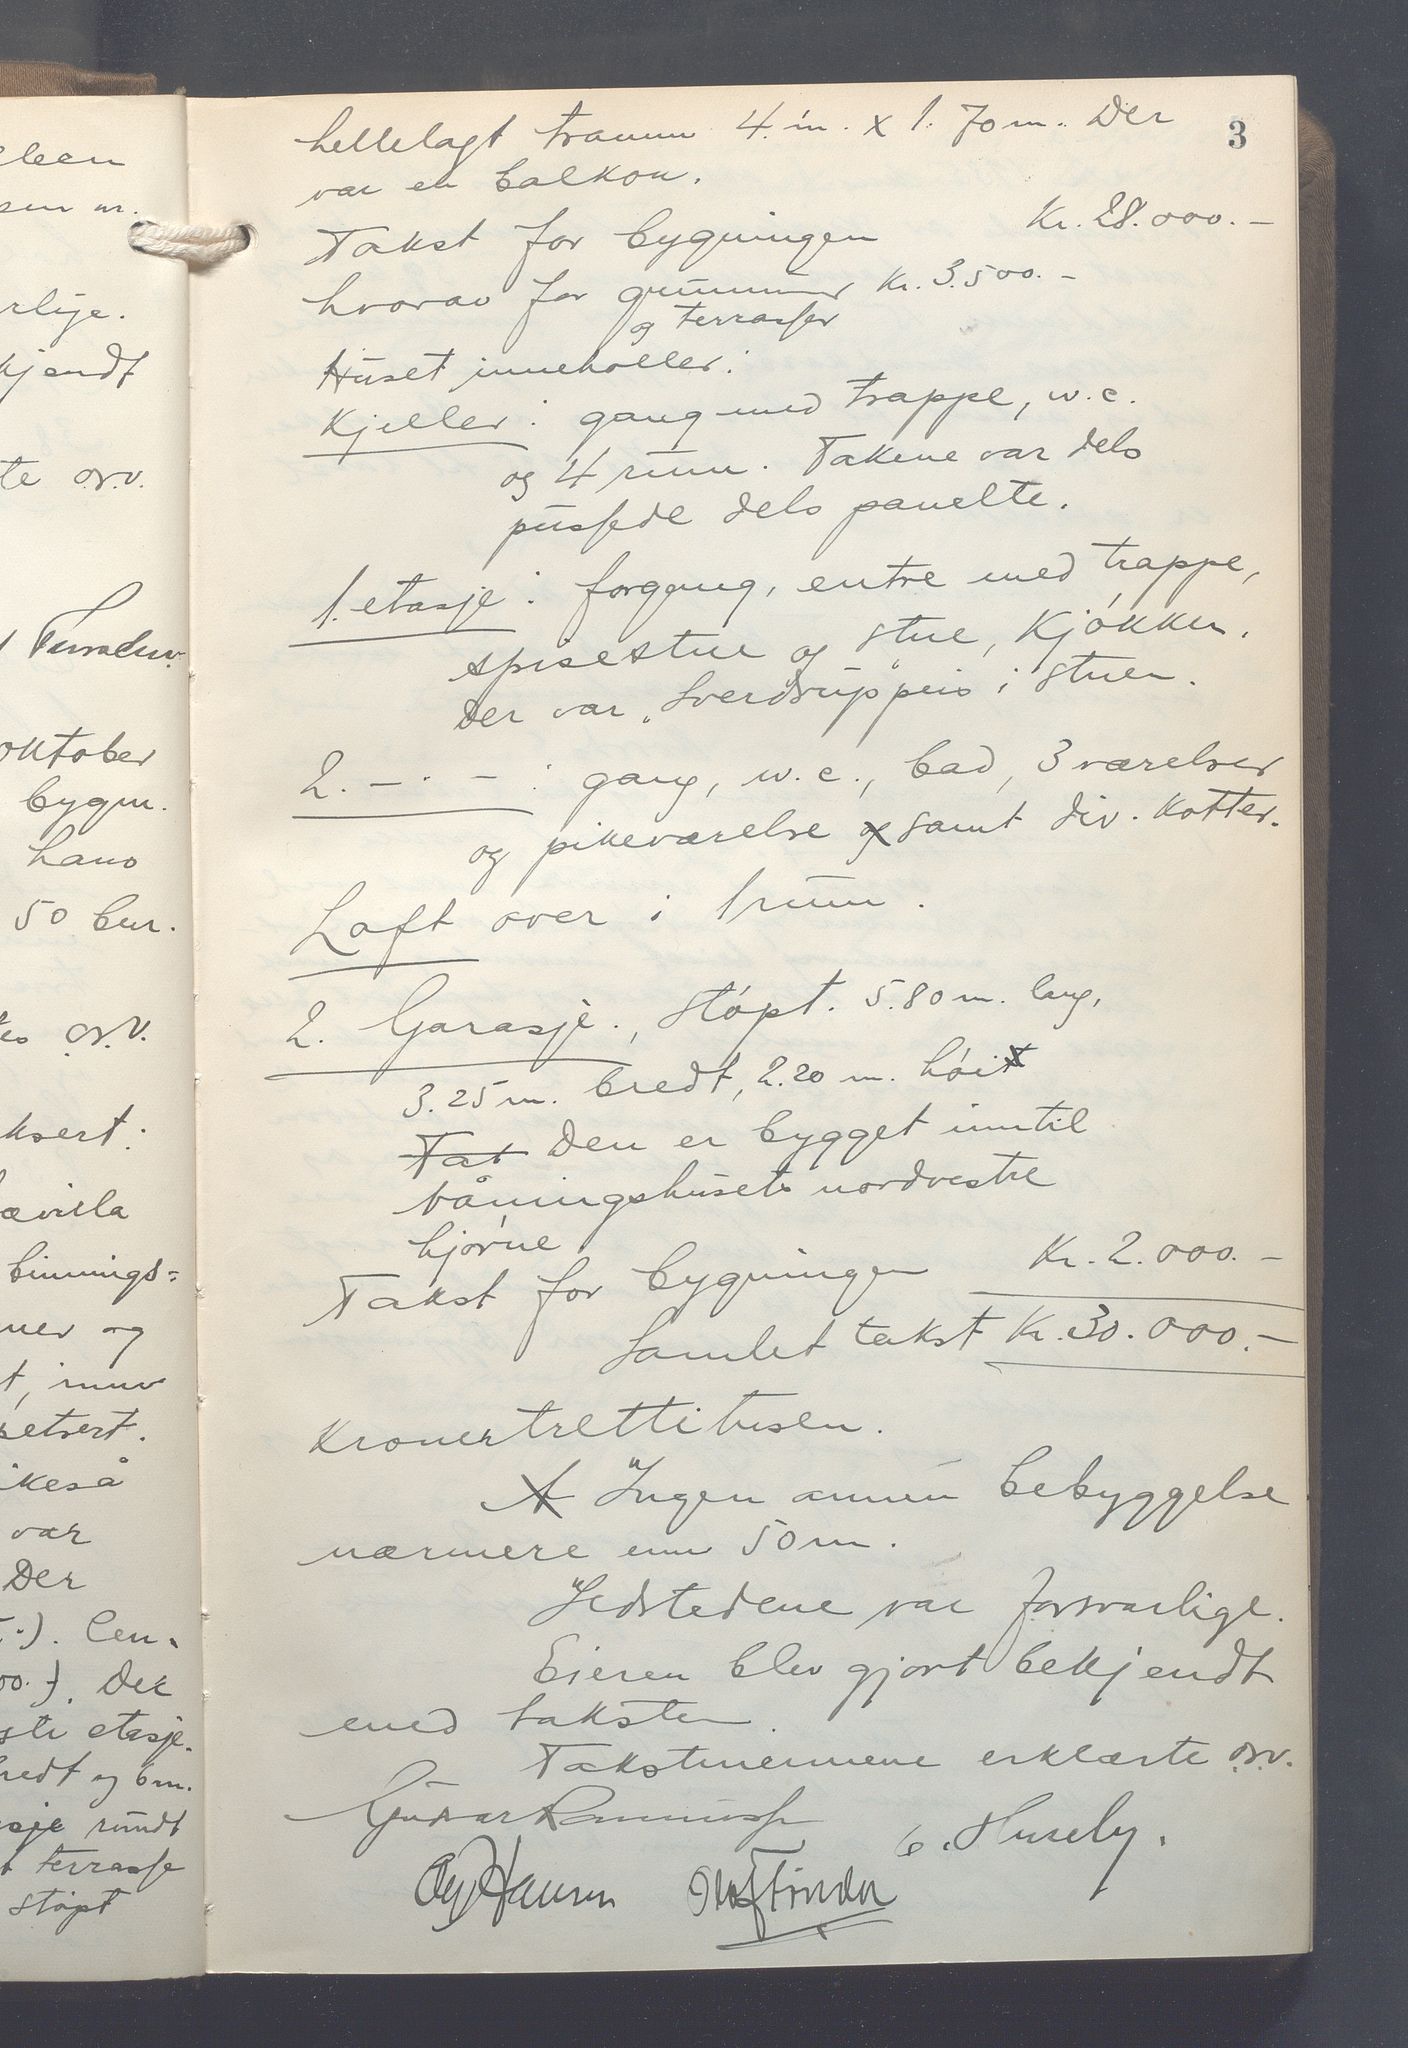 3
hellelagt tramm 4. m. x 1.70 m. Der
var en balkon.
Takst for bygningen Kr. 28.000.-
hvorav for grunnmur Kr. 3.500.-
og terrasser
Huset inneholler:
Kjeller: gang med trappe, w.c.
og 4 rum. Takene var dels
pussede dels panelte.
1. etasje: forgang, entre med trappe,
spisestue og stue, Kjøkken.
Der var "Sverdrup"peis i stuen.
2. - · - : gang, w.c., bad, 3 værelser
og pikeværelse og samt div. Kotter.
Loft over i 1 rum.
2. Garasje., støpt. 5.80 m. lang,
3.25 m. bredt, 2.20 m. høit
Tat Den er bygget inntil
våningshusets nordvestre
hjørne
Takst for bygningen Kr. 2.000.-
Samlet takst Kr. 30.000.-
Kronertrettitusen.
Ingen annen bebyggelse
nærmere enn 50 m.
Ildstedene var forsvarlige.
Eieren blev gjort bekjendt
med taksten.
Takstmennene erklærte o.s.v.
Gunnar Rasmussen E. Huseby.
Hansen
leen
sen nr.
rlige.
kjendt
te o.s.v.
oktober
bygn.
hans
50 bur.
es o.s.v.
ksert:
ævilla
binnings-
ner og
t, innv
petsert.
ikeså
var
Der
Cen.
00.-). Der
ste etasje.
redt og 6 m.
sje rundt
t terrasse
støpt